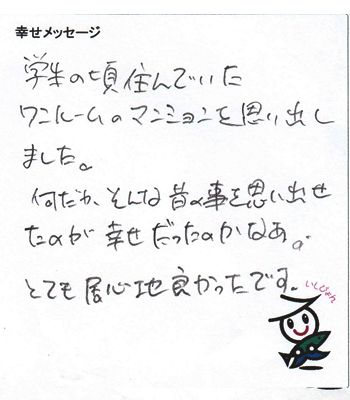 幸せメッセージ
学生の頃住んでいた
ワンルームのマンションを思い出し
ました。
何だか、そんな昔の事を思い出せ
たのが幸せだったのかなあ。
とても居心地良かったです。